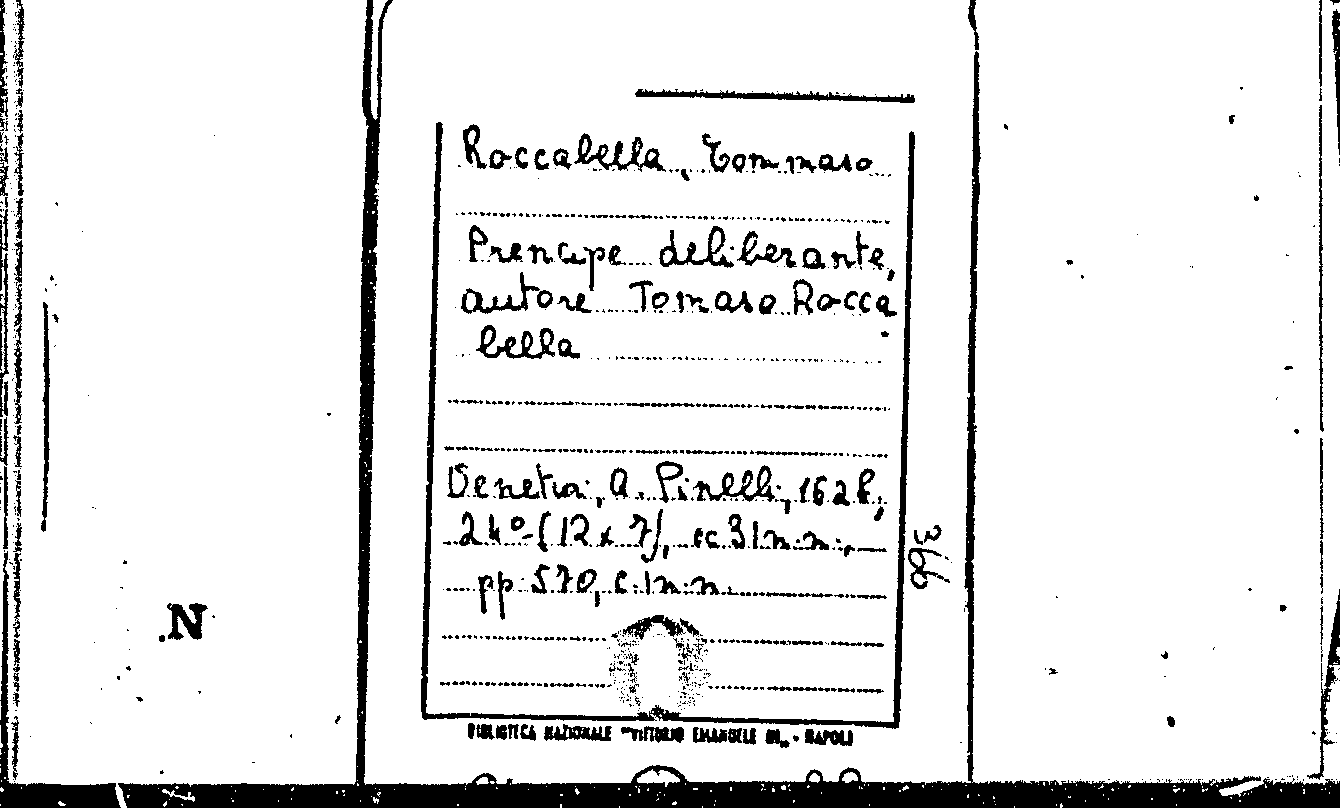 Roccabella, Tommaso
Prencipe deliberante,
autore Tomaso Rocca
bella
Venetia, A. Pinelli, 1628,
24°-(12 x 7), cc 31 n.n.,
pp. 570, c. 1 n.n.
366
.N
BIBLIOTECA NAZIONALE "VITTORIO EMANUELE III„ - NAPOLI